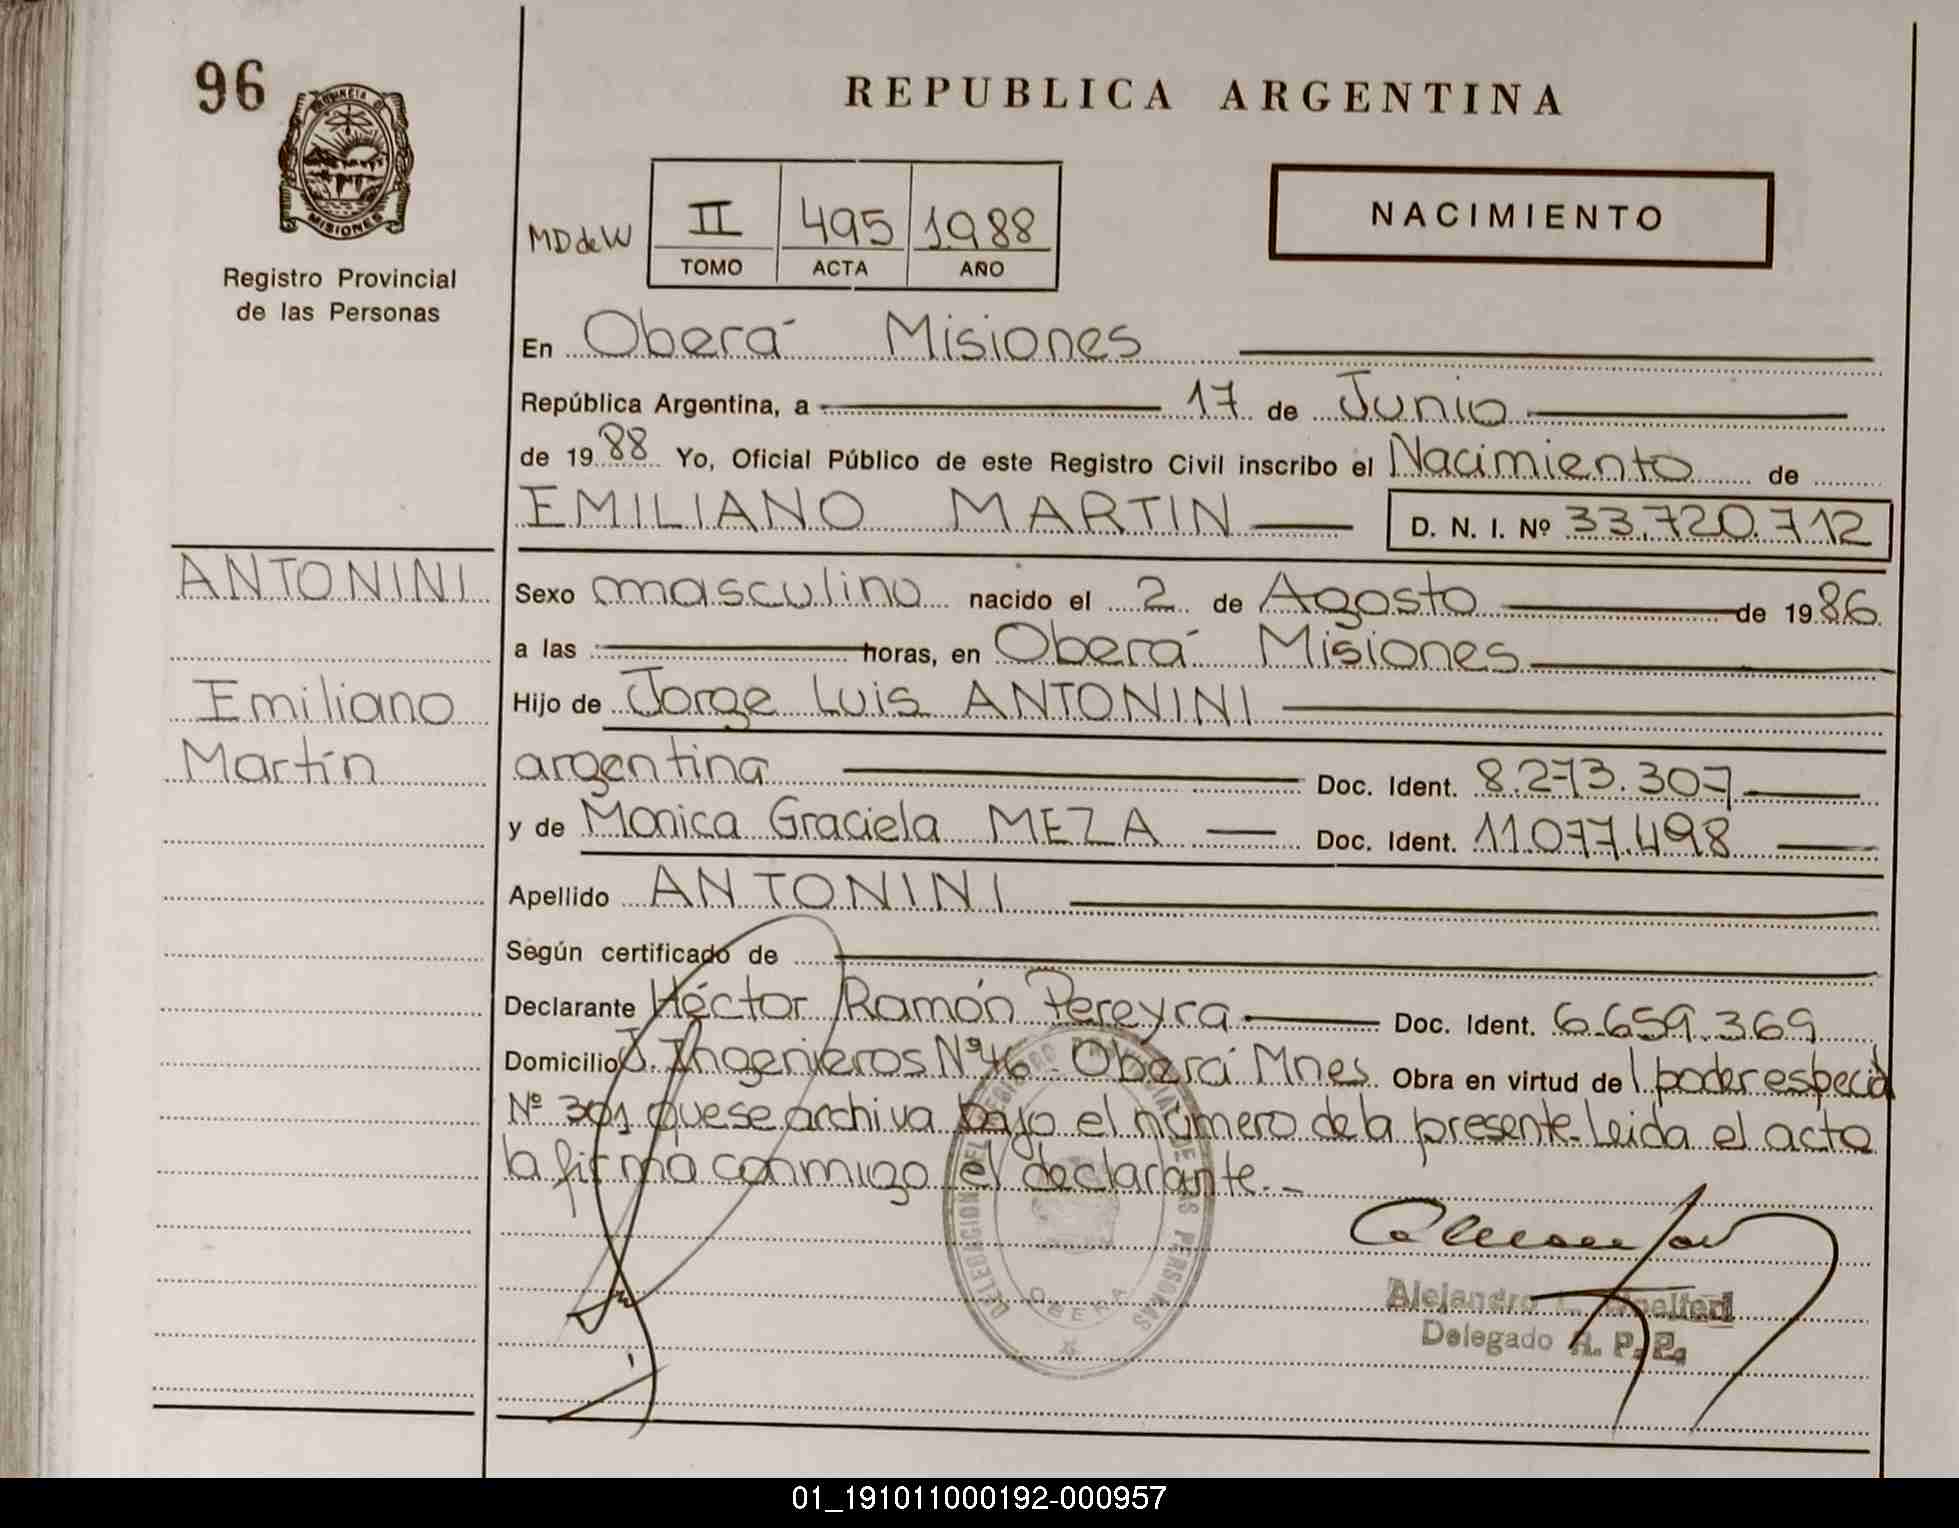 96
PROVINCIA DE
MISIONES
Registro Provincial
de las Personas
REPUBLICA ARGENTINA
MD de W
II 495 1988
TOMO ACTA AÑO
NACIMIENTO
En Oberá Misiones
República Argentina, a 17 de Junio
de 1988 Yo, Oficial Público de este Registro Civil inscribo el Nacimiento de
EMILIANO MARTIN D. N. I. Nº 33.720.712
ANTONINI
Emiliano
Martín
Sexo masculino nacido el 2 de Agosto de 1986
a las horas, en Oberá Misiones
Hijo de Jorge Luis ANTONINI
argentina Doc. Ident. 8.273.307
y de Monica Graciela MEZA Doc. Ident. 11.077.498
Apellido ANTONINI
Según certificado de
Declarante Héctor Ramón Pereyra Doc. Ident. 6.659.369
Domicilio J. Ingenieros Nº 46 - Oberá Mnes Obra en virtud del poder especial
Nº 301 que se archiva bajo el número de la presente. Leida el acta
la firma conmigo el declarante.-
DELEGACION DEL REGISTRO PROVINCIAL DE LAS PERSONAS
OBERA
Alejandro
Delegado R. P. P.
01_191011000192-000957